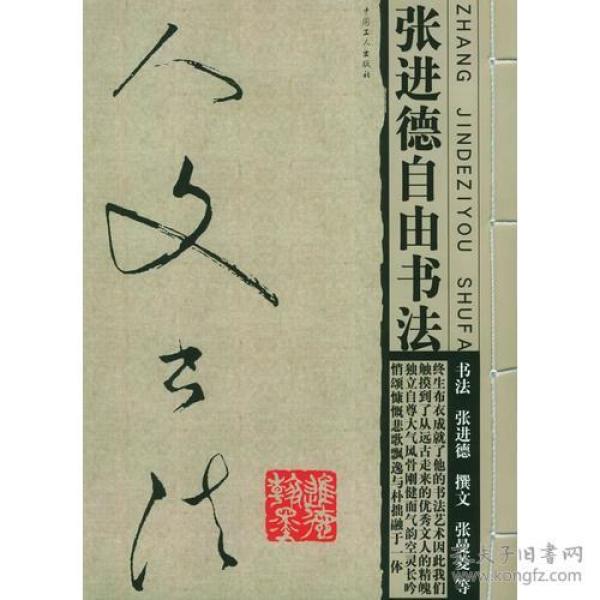 张进德自由书法
ZHANG JINDEZIYOU SHUFA
中国工人出版社
人文书法
进德
翰墨
书法 张进德 撰文 张曼菱 等
终生布衣成就了他的书法艺术因此我们
触摸到了从远古走来的优秀文人的精魄
独立自尊大气风骨刚健而气韵空灵长吟
悄颂慷慨悲歌飘逸与朴拙融于一体
孔夫子旧书网
www.kongfz.com